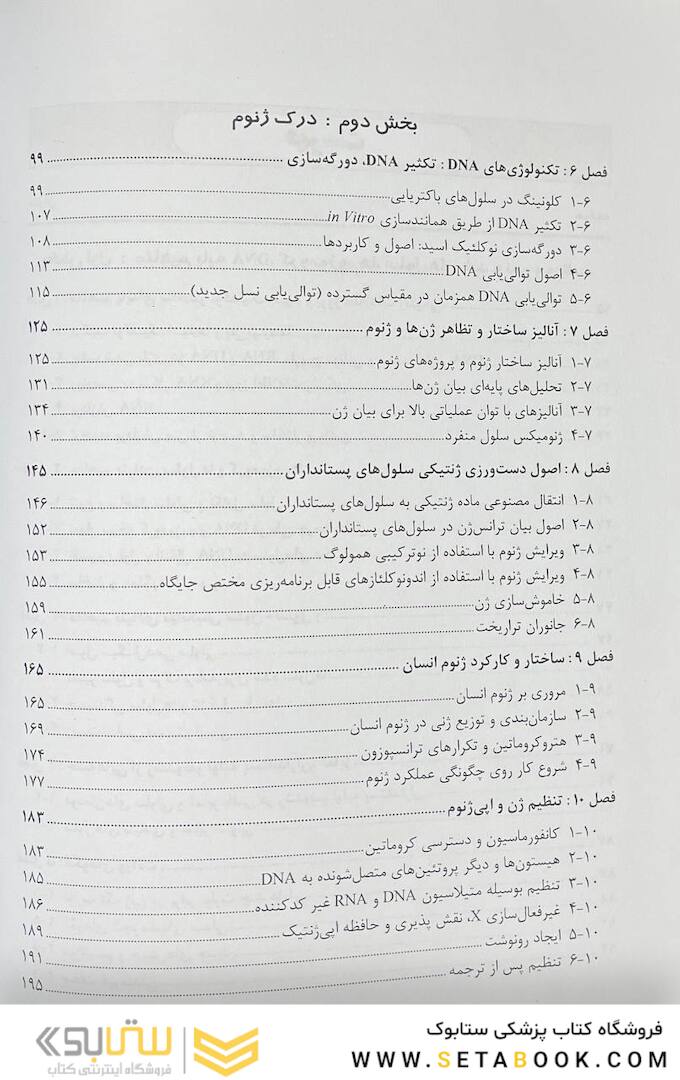 بخش دوم : درک ژنوم
فصل ۶: تکنولوژی‌های DNA : تکثیر DNA، دورگه‌سازی ........ ۹۹
۶-۱ کلونینگ در سلول‌های باکتریایی ........ ۹۹
۶-۲ تکثیر DNA از طریق همانندسازی in Vitro ........ ۱۰۷
۶-۳ دورگه‌سازی نوکلئیک اسید: اصول و کاربردها ........ ۱۰۸
۶-۴ اصول توالی‌یابی DNA ........ ۱۱۳
۶-۵ توالی‌یابی DNA همزمان در مقیاس گسترده (توالی‌یابی نسل جدید) ........ ۱۱۵
فصل ۷: آنالیز ساختار و تظاهر ژن‌ها و ژنوم ........ ۱۲۵
۷-۱ آنالیز ساختار ژنوم و پروژه‌های ژنوم ........ ۱۲۵
۷-۲ تحلیل‌های پایه‌ای بیان ژن‌ها ........ ۱۳۱
۷-۳ آنالیزهای با توان عملیاتی بالا برای بیان ژن ........ ۱۳۴
۷-۴ ژنومیکس سلول منفرد ........ ۱۴۰
فصل ۸: اصول دست‌ورزی ژنتیکی سلول‌های پستانداران ........ ۱۴۵
۸-۱ انتقال مصنوعی ماده ژنتیکی به سلول‌های پستانداران ........ ۱۴۶
۸-۲ اصول بیان ترانس‌ژن در سلول‌های پستانداران ........ ۱۵۲
۸-۳ ویرایش ژنوم با استفاده از نوترکیبی همولوگ ........ ۱۵۳
۸-۴ ویرایش ژنوم با استفاده از اندونوکلئازهای قابل برنامه‌ریزی مختص جایگاه ........ ۱۵۵
۸-۵ خاموش‌سازی ژن ........ ۱۵۹
۸-۶ جانوران تراریخت ........ ۱۶۱
فصل ۹: ساختار و کارکرد ژنوم انسان ........ ۱۶۵
۹-۱ مروری بر ژنوم انسان ........ ۱۶۵
۹-۲ سازمان‌بندی و توزیع ژنی در ژنوم انسان ........ ۱۶۹
۹-۳ هتروکروماتین و تکرارهای ترانسپوزون ........ ۱۷۴
۹-۴ شروع کار روی چگونگی عملکرد ژنوم ........ ۱۷۷
فصل ۱۰: تنظیم ژن و اپی‌ژنوم ........ ۱۸۳
۱۰-۱ کانفورماسیون و دسترسی کروماتین ........ ۱۸۳
۱۰-۲ هیستون‌ها و دیگر پروتئین‌های متصل‌شونده به DNA ........ ۱۸۵
۱۰-۳ تنظیم بوسیله متیلاسیون DNA و RNA غیر کدکننده ........ ۱۸۶
۱۰-۴ غیرفعال‌سازی X، نقش پذیری و حافظه اپی‌ژنتیک ........ ۱۸۹
۱۰-۵ ایجاد رونوشت ........ ۱۹۱
۱۰-۶ تنظیم پس از ترجمه ........ ۱۹۵
فروشگاه کتاب پزشکی ستابوک
WWW.SETABOOK.COM
ستابوک
فروشگاه اینترنتی کتاب